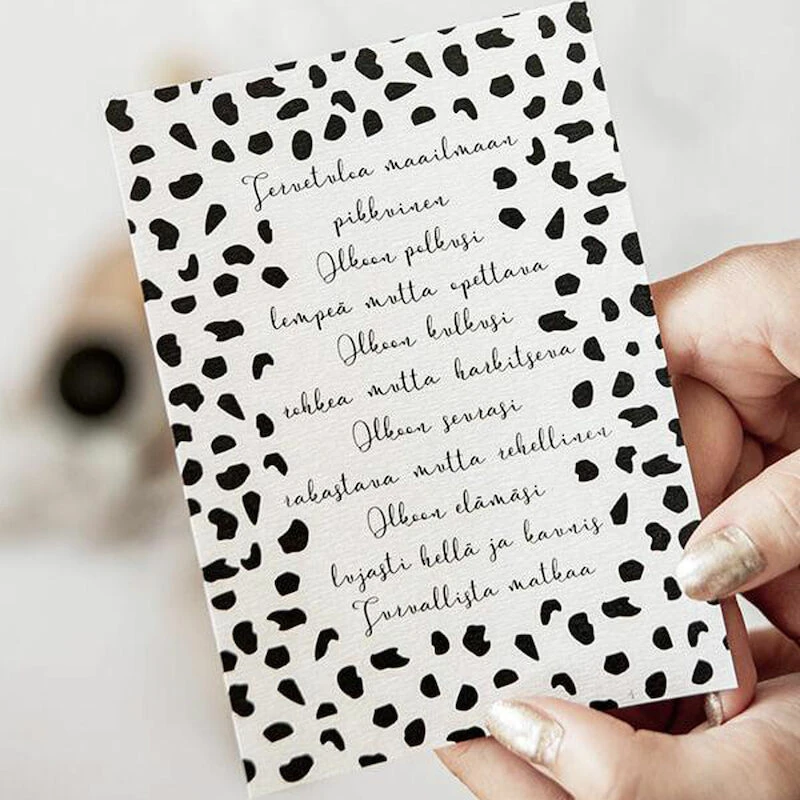 Tervetuloa maailmaan
pikkuinen
Olkoon polkusi
lempeä mutta opettava
Olkoon kulkusi
rohkea mutta harkitseva
Olkoon seurasi
rakastava mutta rehellinen
Olkoon elämäsi
lujasti hellä ja kaunis
Turvallista matkaa